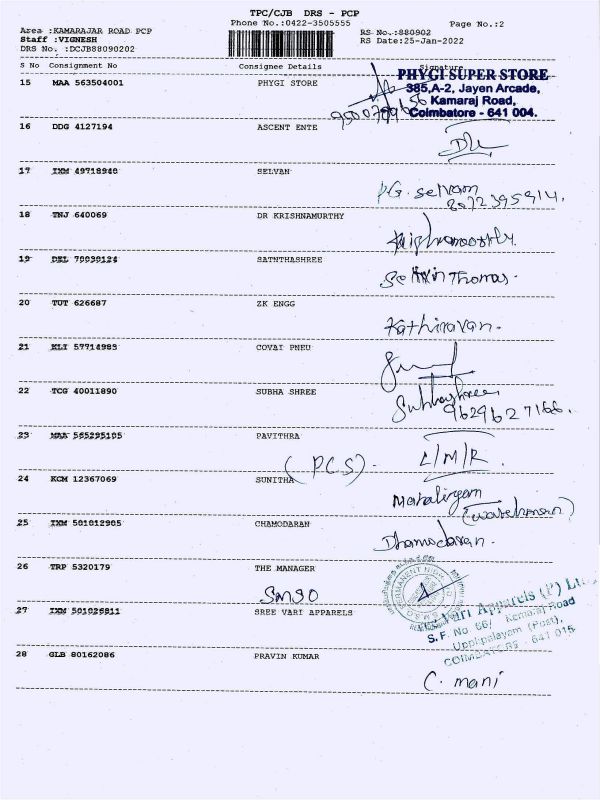 TPC/CJB DRS - PCP
Phone No.:0422-3505555
Page No.:2
Area :KAMARAJAR ROAD PCP
RS No.:880902
Staff :VIGNESH
RS Date:25-Jan-2022
DRS No. :DCJB88090202
S No Consignment No Consignee Details Signature
PHYGI SUPER STORE
385,A-2, Jayen Arcade,
Kamaraj Road,
Coimbatore - 641 004.
15 MAA 563504001 PHYGI STORE
16 DDG 4127194 ASCENT ENTE
17 IXM 49718948 SELVAN
PG. Selvam
8072395914.
18 TNJ 640069 DR KRISHNAMURTHY
Krishnamoorthy.
19 SATNTHASHREE
Thomas.
20 TUT 626687 ZK ENGG
Kathiravan.
21 KLI 57714983 COVAI PNEU
22 TCG 40011890 SUBHA SHREE
Subhashree
9629627166.
23 MAA 565295105 PAVITHRA
(PCS). L/M/R.
24 KCM 12367069 SUNITHA
Mahalingam
25 IXM 501012905 CHAMODARAN
Dhamodaran.
26 TRP 5320179 THE MANAGER
27 IXM SREE VARI APPARELS
Vari Apparels (P) Ltd
S.F. No 66/ Kamaraj Road
Uppilipalayam (Post),
COIMBATORE - 641 015
28 GLB 80162086 PRAVIN KUMAR
C. mani